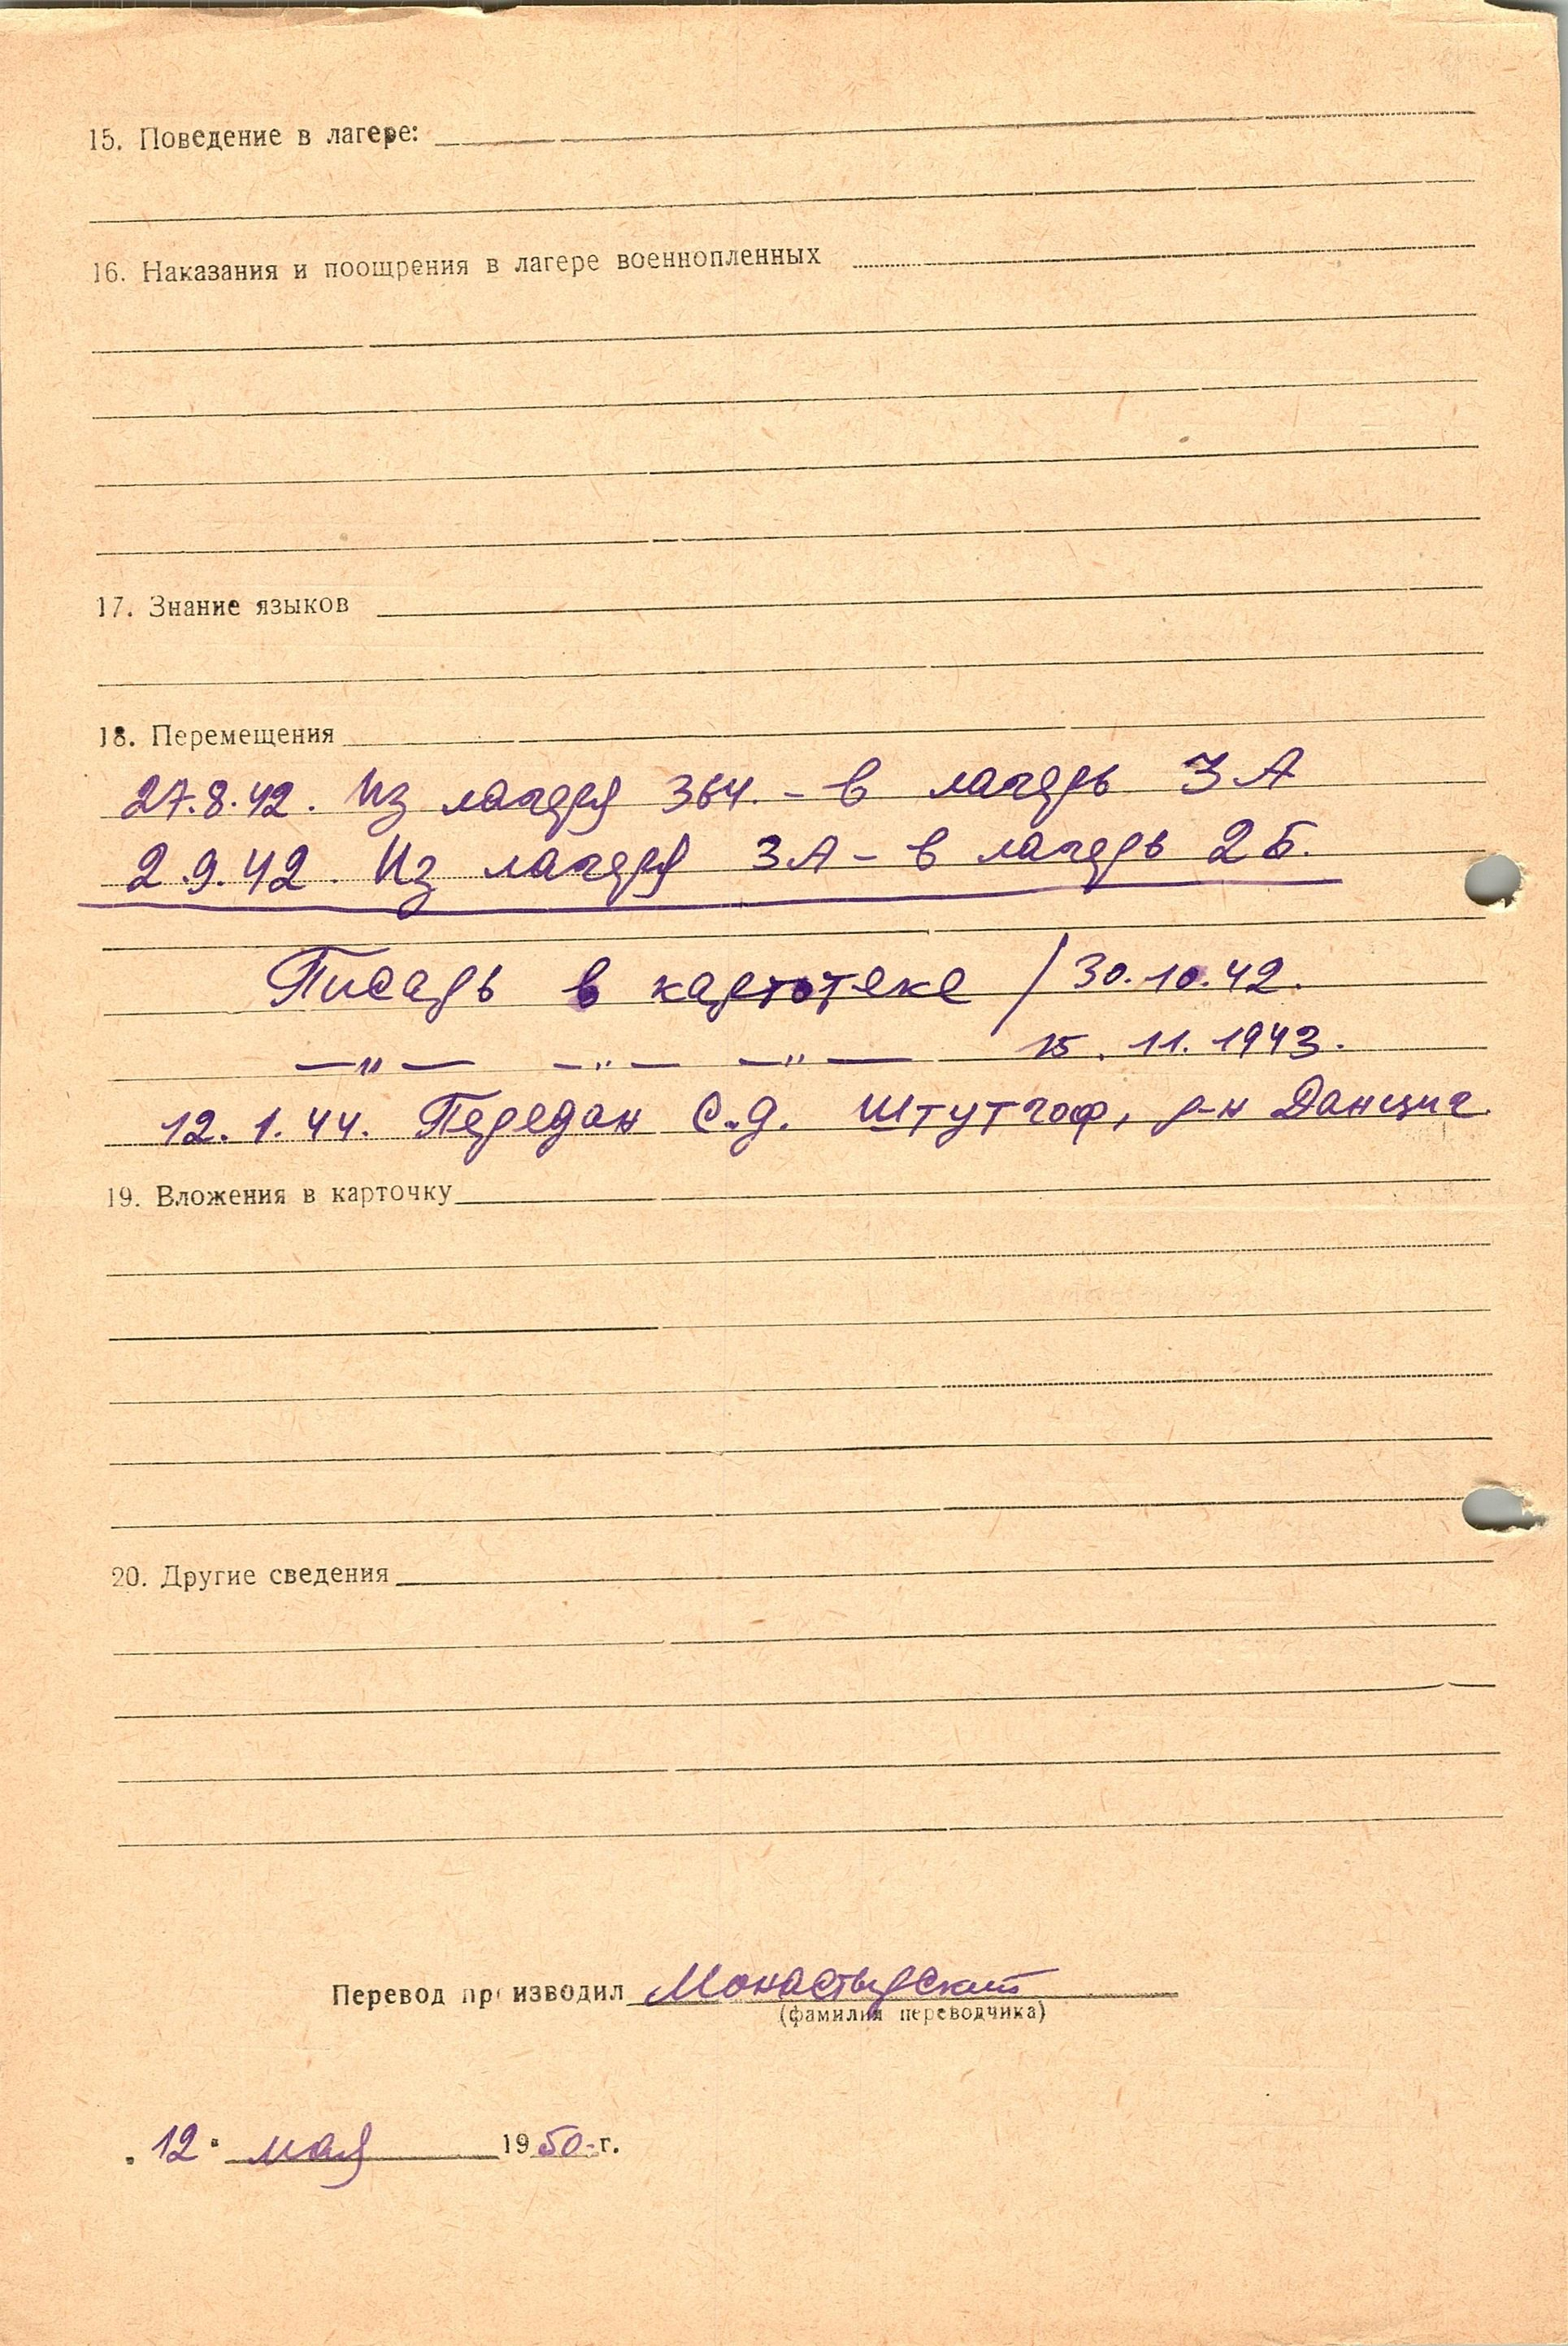 15. Поведение в лагере:
16. Наказания и поощрения в лагере военнопленных
17. Знание языков
18. Перемещения
27.8.42. Из лагеря 364. – в лагерь 3А
2.9.42. Из лагеря 3А – в лагерь 2Б.
Писарь в картотеке / 30.10.42.
—„— —„— —„— 15. 11. 1943.
12. 1. 44. Передан С.д. Штутгоф, р-н Данциг.
19. Вложения в карточку
20. Другие сведения
Перевод производил Монастырский
(фамилия переводчика)
„12" мая 1950 г.